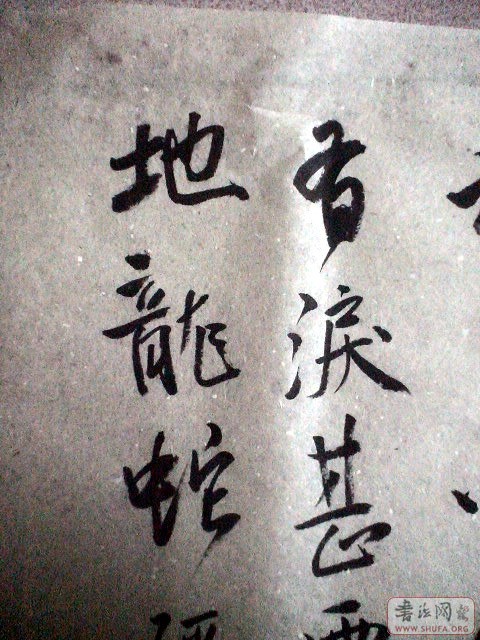 有淚甚
地龍蛇
書法网
WWW.SHUFA.ORG